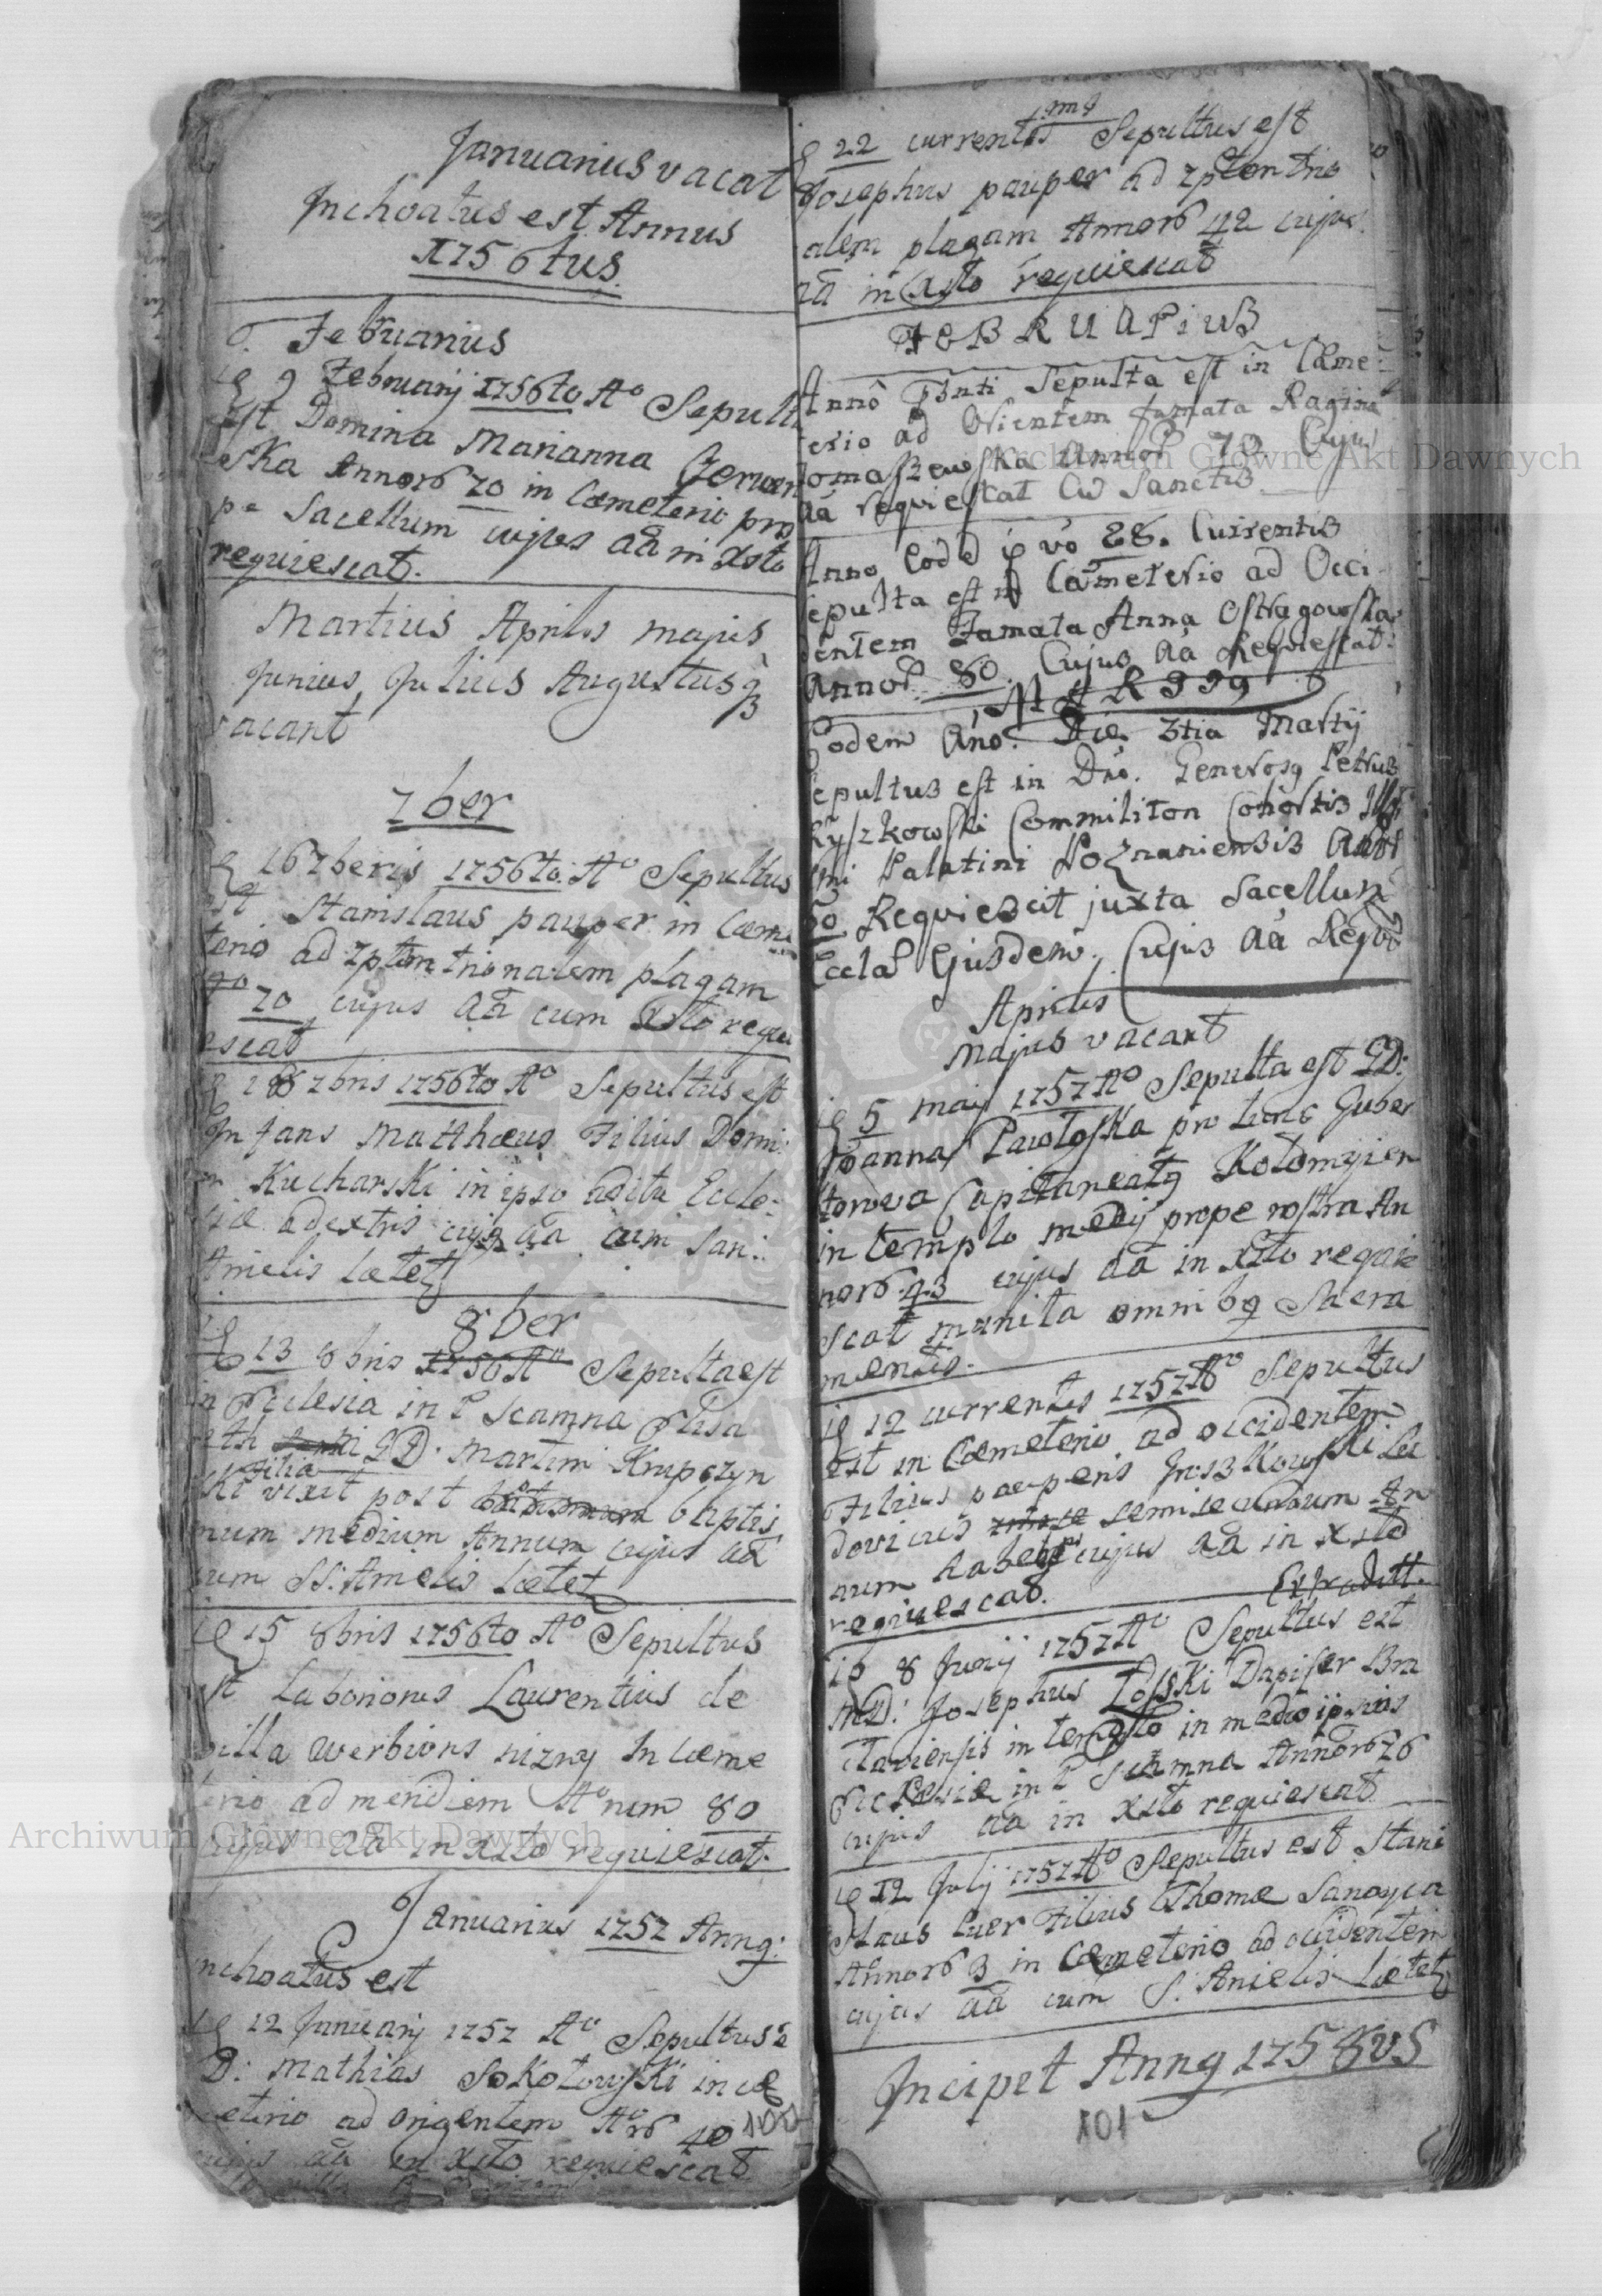 Januarius vacat
Inchoatus est Annus
1756tus.
Februarius
9 Februarij 1756to Aº Sepult
Est Domina Marianna Czerwen
ska Annorʒ 70 in Cœmeterio pro
pe Sacellum cujus aã in Xsto
requiescat.
Martius Aprilis majus
Junius Julius Augustus
vacant
7ber
16 7beris 1756to. Aº Sepultus
est Stanislaus pauper in Cœme
terio ad 7ptemtrionalem plagam
70 cujus aã cum Xsto requi
escat
18 7bris 1756to Aº Sepultus est
Infans Matthæus Filius Domi
Kucharski in ipso aditu Eccle
siæ adextris cujq aã cum San:
Amielis lætet
8ber
13 8bris 1756 Aº Sepulta est
in Ecclesia in Scamna Elisa
beth Filia GD: Martini Krupczyn
ski vixit post baptis
mum medium Annum cujus aã
cum SS: Amielis lætet
15 8bris 1756to Aº Sepultus
est Laboriorus Laurentius de
villa Werbions nizny In Cœme
terio ad meridiem Aºnum 80
cujus aã in Xsto requiescat.
Januarius 1757 Annq:
inchoatus est
12 Januarij 1757 Aº Sepultus e
D: Mathias Sokołowski in cœ
meterio ad orientem Aºrʒ 40
cujus aã in Xsto requiescat
100
22 currentis Sepultus est
Josephus pauper ad 7ptentrio
nalem plagam Annorʒ 42 cujus
aã in Xsto requiescat
FEBRUARIUS
Anno Sepulta est in Cæme
terio ad Orientem famata Ragina
Tomaszewska Annor 70 Cujus
aã requiescat Cũ Sanctis
Anno Eodē 28. Currentis
Sepulta est in Cæmeterio ad Occi
dentem Famata Anna Ostragowska
Annor. 80. Cujus aã Requiescat:
Eodem Año. Die 3tia Martij
Sepultus est in Dño. Generosq Petrus
Ryszkowski Commiliton Cohortis
Palatini Poznaniensis
Requiescit juxta Sacellum
Ejusdem. Cujus aã Reqt
Aprilis
Majus vacant
5 maij 1757 Aº Sepulta est GD:
Joanna Pawłoska pro tunc Guber
natorowa Capitaneatq Kołomyien
in templo medij prope rostra An
norʒ 43 cujus aã in Xsto requie
scat munita omnibq Sacra
mentis.
12 currentis 1757 Aº Sepultus
est in Cœmeterio ad occidentem
Filius pauperis Griszkowski Lu
dovicus semisecundum An
num habens cujus aã in Xsto
requiescat.
8 Junij 1757 Aº Sepultus est
MD: Josephus Łosski Dapifer Bra
claviensis in templo in medio ipsius
Ecclesiæ in Scamna Annorʒ 76
cujus aã in Xsto requiescat
12 Julij 1757 Aº Sepultus est Stani
slaus Puer Filius Thomæ Sanoyca
Annorʒ 3 in Cœmeterio ad occidentem
cujus aã cum S. Anielis Lætet
Incipet Annq 1758vs
101
Archiwum Główne Akt Dawnych
Archiwum Główne Akt Dawnych